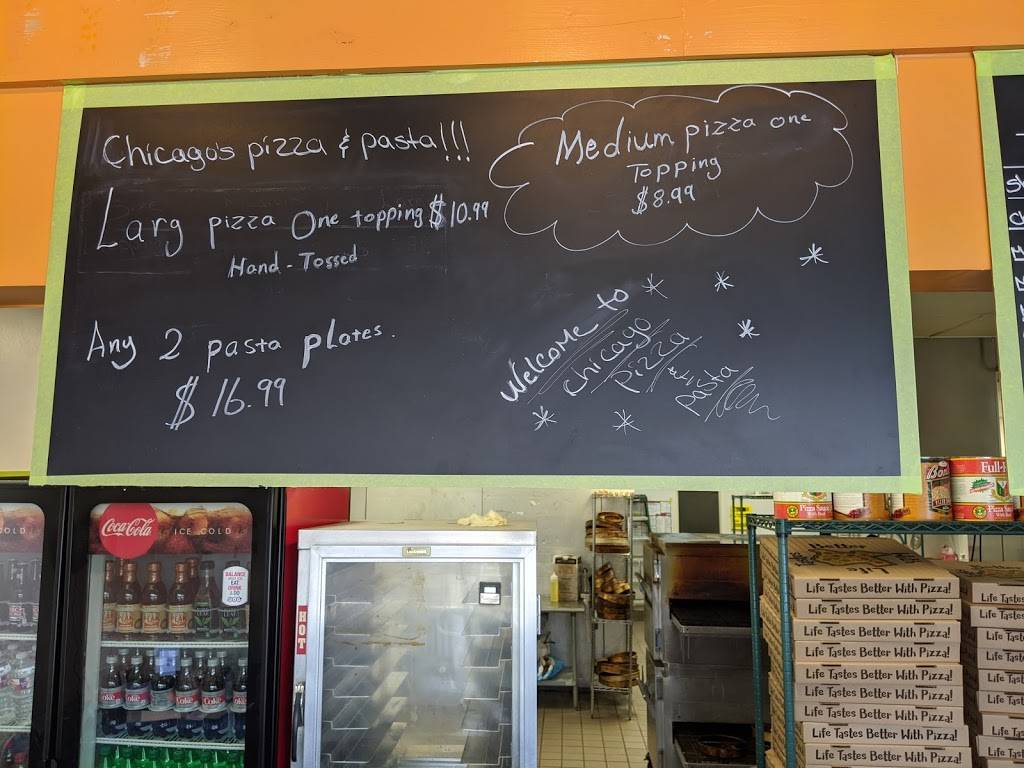 Chicago's pizza & pasta!!!
Larg pizza One topping $10.99
Hand-Tossed
Any 2 pasta plates.
$16.99
Medium pizza one
Topping
$8.99
Welcome to
chicago
pizza
&
pasta
Coca-Cola
ICE COLD
HOT
BALANCE
EAT
DRINK
& DO
Full-
Pizza Sauce
Life Tastes Better With Pizza!
Life Tastes Better With Pizza!
Life Tastes Better With Pizza!
Life Tastes Better With Pizza!
Life Tastes Better With Pizza!
Life Tastes Better With Pizza!
Life Tastes Better With Pizza!
Life Tastes Better With Pizza!
Life Tastes Better With Pizza!